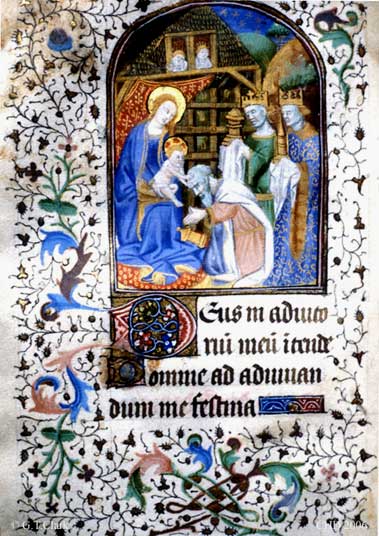 Deus in adiuto
riū meū ītende
Domine ad adiuuan
dum me festina
© G.T.Clark
CHD 2006